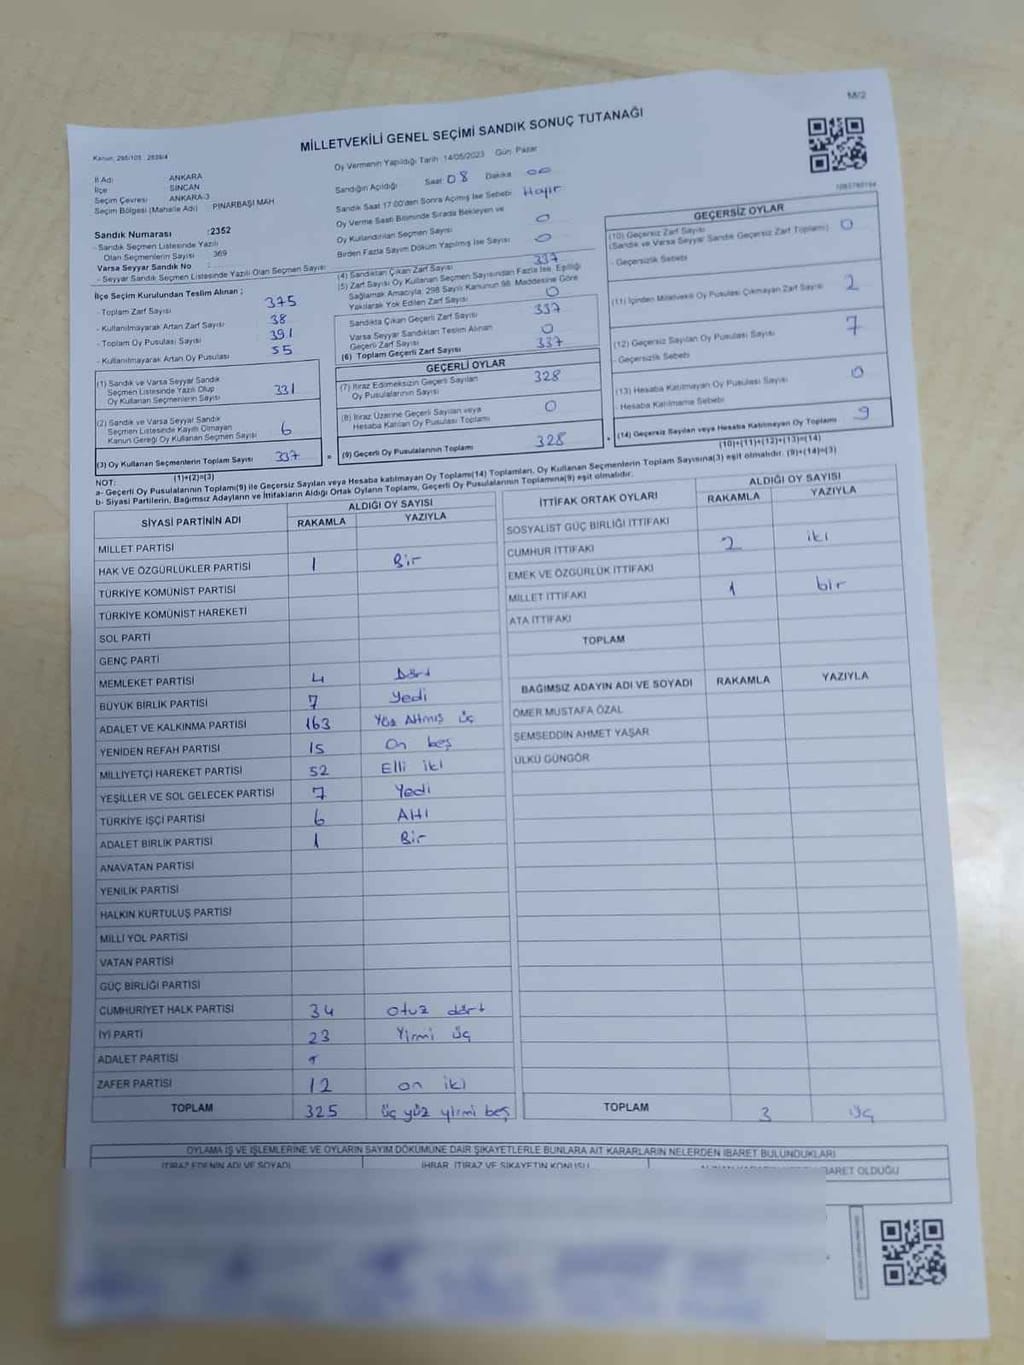 M/2
MİLLETVEKİLİ GENEL SEÇİMİ SANDIK SONUÇ TUTANAĞI
Kanun: 298/105 2839/4
Oy Vermenin Yapıldığı Tarih 14/05/2023 Gün: Pazar
İl Adı ANKARA
İlçe SİNCAN
Seçim Çevresi ANKARA-3
Seçim Bölgesi (Mahalle Adı) PINARBAŞI MAH
Sandığın Açıldığı Saat 08 Dakika 00
Sandık Saat 17:00'den Sonra Açılmış İse Sebebi Hayır
Oy Verme Saati Bitiminde Sırada Bekleyen ve
Oy Kullandırılan Seçmen Sayısı 0
Birden Fazla Sayım Döküm Yapılmış İse Sayısı 0
Sandık Numarası :2352
- Sandık Seçmen Listesinde Yazılı
Olan Seçmenlerin Sayısı 369
Varsa Seyyar Sandık No
- Seyyar Sandık Seçmen Listesinde Yazılı Olan Seçmen Sayısı
İlçe Seçim Kurulundan Teslim Alınan ;
- Toplam Zarf Sayısı 375
- Kullanılmayarak Artan Zarf Sayısı 38
- Toplam Oy Pusulası Sayısı 391
- Kullanılmayarak Artan Oy Pusulası 55
(1) Sandık ve Varsa Seyyar Sandık
Seçmen Listesinde Yazılı Olup
Oy Kullanan Seçmenlerin Sayısı 331
(2) Sandık ve Varsa Seyyar Sandık
Seçmen Listesinde Kayıtlı Olmayan
Kanun Gereği Oy Kullanan Seçmen Sayısı 6
(3) Oy Kullanan Seçmenlerin Toplam Sayısı 337
(1)+(2)=(3)
(4) Sandıktan Çıkan Zarf Sayısı 337
(5) Zarf Sayısı Oy Kullanan Seçmen Sayısından Fazla İse, Eşitliği
Sağlamak Amacıyla; 298 Sayılı Kanunun 98. Maddesine Göre
Yakılarak Yok Edilen Zarf Sayısı 0
Sandıkta Çıkan Geçerli Zarf Sayısı 337
Varsa Seyyar Sandıktan Teslim Alınan
Geçerli Zarf Sayısı 0
(6) Toplam Geçerli Zarf Sayısı 337
GEÇERLİ OYLAR
(7) İtiraz Edilmeksizin Geçerli Sayılan
Oy Pusulalarının Sayısı 328
(8) İtiraz Üzerine Geçerli Sayılan veya
Hesaba Katılan Oy Pusulası Toplamı 0
= (9) Geçerli Oy Pusulalarının Toplamı 328
GEÇERSİZ OYLAR
(10) Geçersiz Zarf Sayısı 0
(Sandık ve Varsa Seyyar Sandık Geçersiz Zarf Toplamı)
- Geçersizlik Sebebi
(11) İçinden Milletvekili Oy Pusulası Çıkmayan Zarf Sayısı 2
(12) Geçersiz Sayılan Oy Pusulası Sayısı 7
- Geçersizlik Sebebi
(13) Hesaba Katılmayan Oy Pusulası Sayısı 0
- Hesaba Katılmama Sebebi
+ (14) Geçersiz Sayılan veya Hesaba Katılmayan Oy Toplamı 9
(10)+(11)+(12)+(13)=(14)
NOT:
a- Geçerli Oy Pusulalarının Toplamı(9) ile Geçersiz Sayılan veya Hesaba katılmayan Oy Toplamı(14) Toplamları, Oy Kullanan Seçmenlerin Toplam Sayısına(3) eşit olmalıdır. (9)+(14)=(3)
b- Siyasi Partilerin, Bağımsız Adayların ve İttifakların Aldığı Ortak Oyların Toplamı, Geçerli Oy Pusulalarının Toplamına(9) eşit olmalıdır.
SİYASİ PARTİNİN ADI ALDIĞI OY SAYISI
RAKAMLA YAZIYLA
MİLLET PARTİSİ
HAK VE ÖZGÜRLÜKLER PARTİSİ 1 Bir
TÜRKİYE KOMÜNİST PARTİSİ
TÜRKİYE KOMÜNİST HAREKETİ
SOL PARTİ
GENÇ PARTİ
MEMLEKET PARTİSİ 4 Dört
BÜYÜK BİRLİK PARTİSİ 7 Yedi
ADALET VE KALKINMA PARTİSİ 163 Yüz Altmış üç
YENİDEN REFAH PARTİSİ 15 On beş
MİLLİYETÇİ HAREKET PARTİSİ 52 Elli iki
YEŞİLLER VE SOL GELECEK PARTİSİ 7 Yedi
TÜRKİYE İŞÇİ PARTİSİ 6 Altı
ADALET BİRLİK PARTİSİ 1 Bir
ANAVATAN PARTİSİ
YENİLİK PARTİSİ
HALKIN KURTULUŞ PARTİSİ
MİLLİ YOL PARTİSİ
VATAN PARTİSİ
GÜÇ BİRLİĞİ PARTİSİ
CUMHURİYET HALK PARTİSİ 34 Otuz dört
İYİ PARTİ 23 Yirmi üç
ADALET PARTİSİ
ZAFER PARTİSİ 12 on iki
TOPLAM 325 üç yüz yirmi beş
İTTİFAK ORTAK OYLARI ALDIĞI OY SAYISI
RAKAMLA YAZIYLA
SOSYALİST GÜÇ BİRLİĞİ İTTİFAKI
CUMHUR İTTİFAKI 2 iki
EMEK VE ÖZGÜRLÜK İTTİFAKI
MİLLET İTTİFAKI 1 bir
ATA İTTİFAKI
TOPLAM
BAĞIMSIZ ADAYIN ADI VE SOYADI RAKAMLA YAZIYLA
ÖMER MUSTAFA ÖZAL
ŞEMSEDDİN AHMET YAŞAR
ÜLKÜ GÜNGÖR
TOPLAM 3 üç
OYLAMA İŞ VE İŞLEMLERİNE VE OYLARIN SAYIM DÖKÜMÜNE DAİR ŞİKAYETLERLE BUNLARA AİT KARARLARIN NELERDEN İBARET BULUNDUKLARI
İTİRAZ EDENİN ADI VE SOYADI İHBAR, İTİRAZ VE ŞİKAYETİN KONUSU